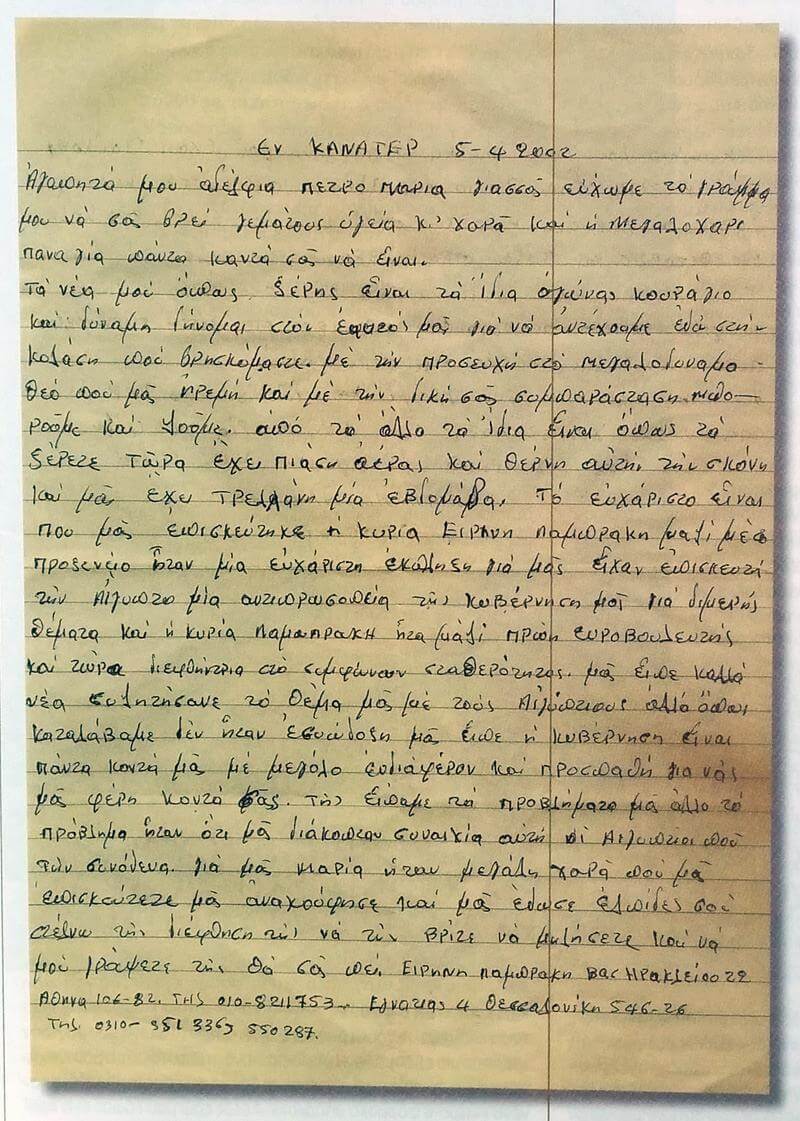 ΕΝ ΚΑΝΑΤΕΡ 5-4 2002
Αγαπητά μου αδέλφια πετρο Μαρια γιασσας εύχωμε το γράμμα
μου νά σας βρεί γεμάτους υγεία κ' χαρά και ή Μεγαλοχαρι
παναγία πάντα καντά σας νά είναι.
Τά νέα μού όπως ξέρης είναι τα ίδια αγώνας κουράγιο
και δύναμη δήνομαι στον εαυτός μας γιά νά αντέχουμε εδώ στήν
κολάση πού βρησκόμαστε. μέ την προσευχή στό μεγαλοδυναμο
θεό πού μας ηρεμή και μέ την δική σας συμπαράσταση μπο-
ρούμε και ζούμε. από τό άλλο τα ίδια είναι όπως τα
ξέρετε τώρα έχει πιάση αέρας και θέρνη αυτήν την σκόνη
και μας έχει τρελλάνη μία εβδομάδα. Τό ευχάριστο είναι
που μας επισκεύτηκε ή κυρία Ειρηνη Λαμπρακη μαζί μέ
προξενείο ήταν μία ευχάριστη έκπληξη γιά μας είχαν επισκευτή
την Αίγυπτο μία αντιπρωσοπεία της κυβέρνησης μας γιά διμερής
θέματα και ή κυρία Λαμπρακη ήτα μαζί πρώην ευροβουλευτής
και τώρα διευθήντρια στό σύμφωνων σταθερότητας. μας είπε καλλά
νέα συζητήσανε τό θέμα μας μέ τους Αιγύπτιους αλλά όπως
καταλάβαμε δέν ήταν εσιώδοξη μας είπε ή κυβέρνηση είναι
πάντα κοντά μας μέ μεγάλο ενδιαφέρον και προσπαθή γιά νάς
μας φέρη κοντά σας. Της είπαμε τα προβλήματα μας άλλο τό
πρόβλημα ήταν ότι μας διάκοπταν συναιχία αυτή οί Αιγύπτιοι πού
τών συνόδευα. γιά μας Μαρία ήταν μεγάλη χαρά πού μας
επισκεύτετε μας ανακούφησε και μας έδωσε ελπίδες σού
στέλνω της διέφθηση της νά της βρίτε νά μιλήσετε και νά
μού γράψετε της θά σας πεί. Ειρηνη Λαμπρακη Βας Ηρακλειου 22
Αθηνα 106-82. ΤΗΛ 010-8211753. Εγνατιας 4 Θεσσαλονίκη 546-26
Τηλ. 0310- 551 336 550 287.